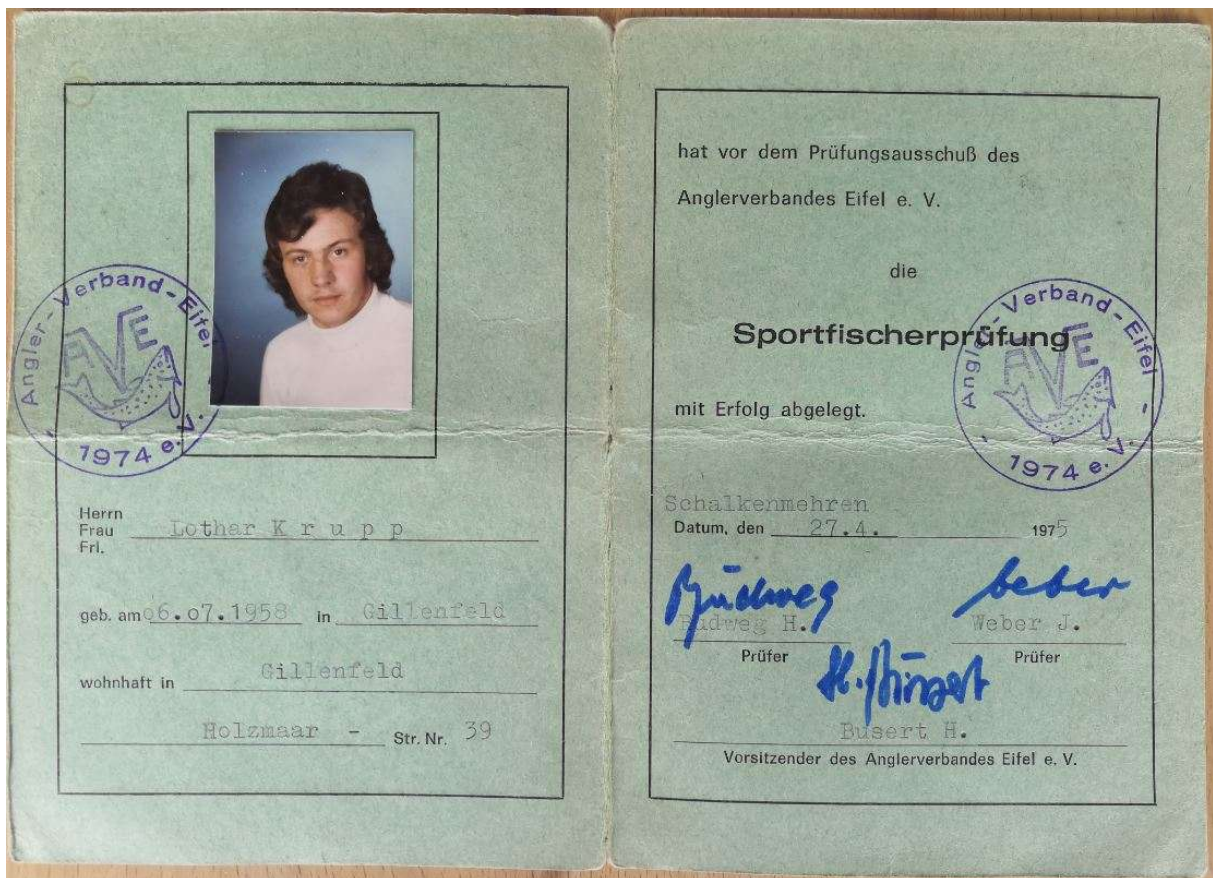 Angler-Verband-Eifel
AVE
- 1974 e.V. -
Herrn
Frau
Frl.
Lothar K r u p p
geb. am o6.o7.1958 in Gillenfeld
wohnhaft in Gillenfeld
Holzmaar - Str. Nr. 39
hat vor dem Prüfungsausschuß des
Anglerverbandes Eifel e. V.
die
Sportfischerprüfung
mit Erfolg abgelegt.
Angler-Verband-Eifel
AVE
- 1974 e.V. -
Schalkenmehren
Datum, den 27.4. 1975
Budweg H. Weber J.
Prüfer Prüfer
Busert H.
Vorsitzender des Anglerverbandes Eifel e. V.